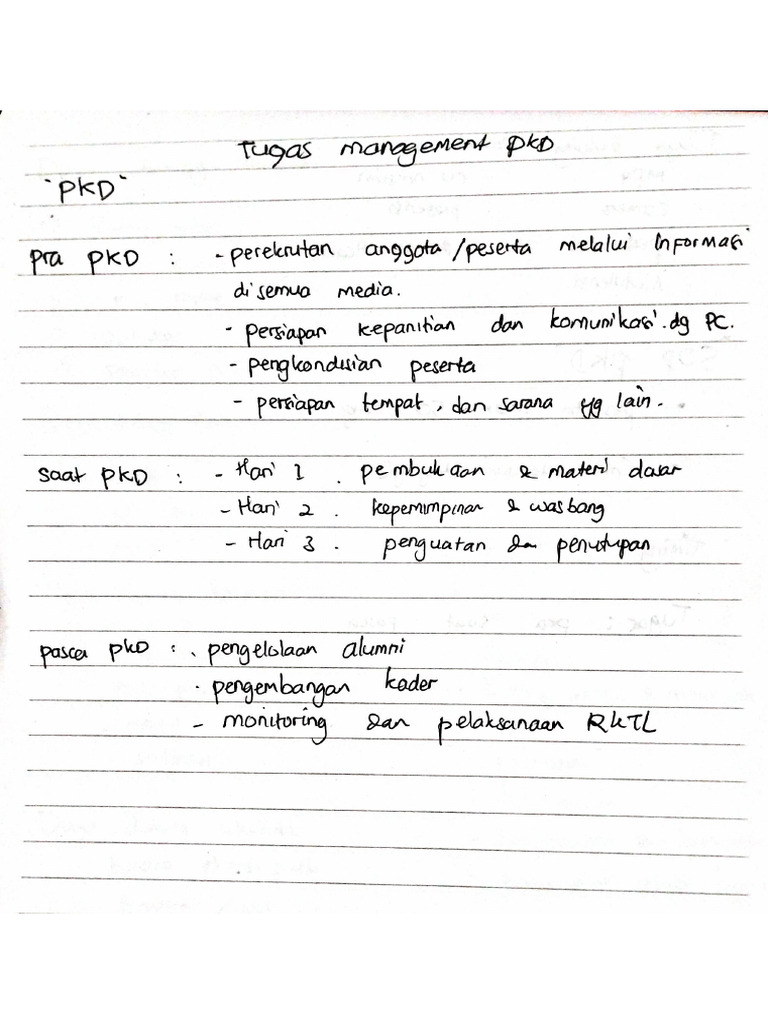 Tugas management PKD
"PKD"
Pra PKD : - perekrutan anggota/peserta melalui Informasi
di semua media.
- persiapan kepanitian dan komunikasi. dg PC.
- pengkondisian peserta
- persiapan tempat, dan sarana yg lain.
Saat PKD : - Hari 1 . pembukaan & materi dasar
- Hari 2 . kepemimpinan & wasbang
- Hari 3 . penguatan dan penutupan
pasca PKD : . pengelolaan alumni
. pengembangan kader
- monitoring dan pelaksanaan RKTL